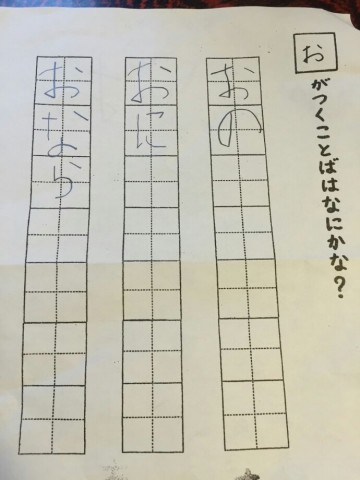 おがつくことばはなにかな?
おの
おに
おなら